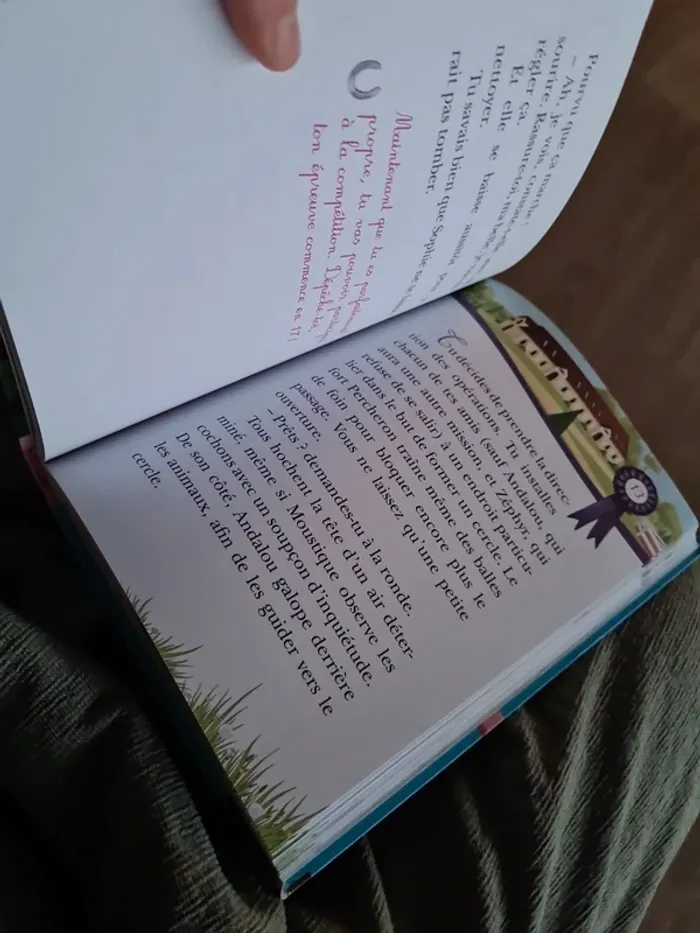 Pourvu que ça marche !
– Ah, je vois, constate
sourire. Rassure-toi, ma belle,
régler ça.
Et elle se baisse aussitôt
nettoyer.
Tu savais bien que Sophie ne
rait pas tomber.
Maintenant que tu es
propre, tu vas pouvoir
à la compétition. Dépêche-toi,
ton épreuve commence en 17 !
13
Tu décides de prendre la direc-
tion des opérations. Tu installes
chacun de tes amis (sauf Andalou, qui
aura une autre mission, et Zéphyr, qui
refuse de se salir) à un endroit particu-
lier dans le but de former un cercle. Le
fort Percheron traîne même des balles
de foin pour bloquer encore plus le
passage. Vous ne laissez qu'une petite
ouverture.
– Prêts ? demandes-tu à la ronde.
Tous hochent la tête d'un air déter-
miné, même si Moustique observe les
cochons avec un soupçon d'inquiétude.
De son côté, Andalou galope derrière
les animaux, afin de les guider vers le
cercle.